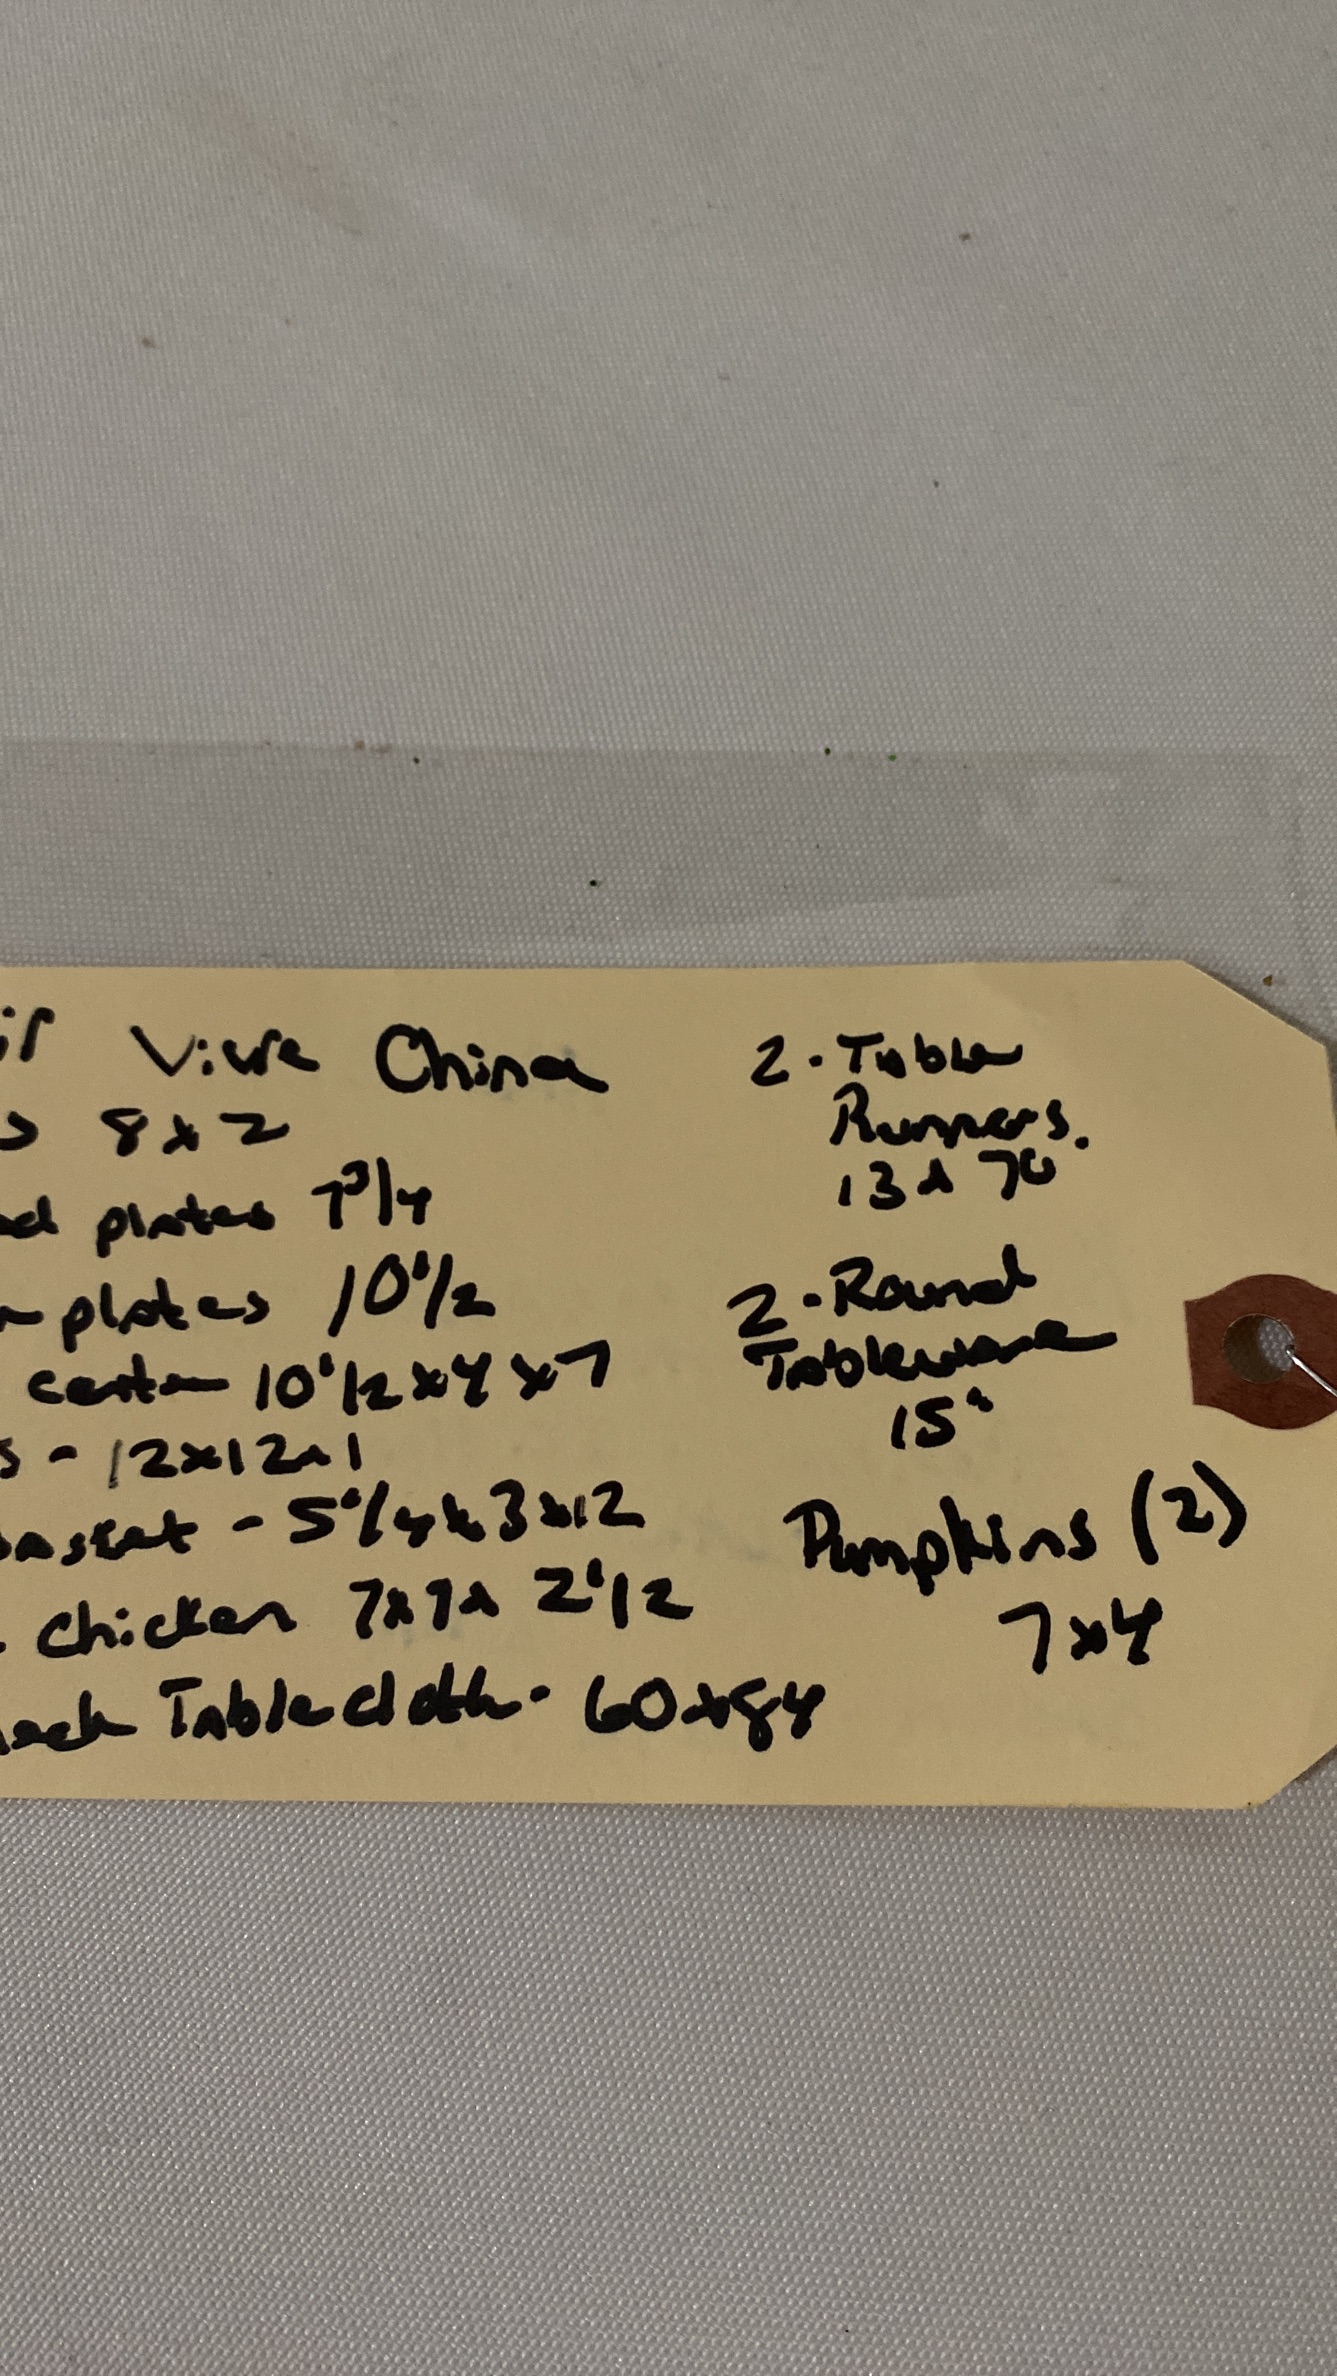 Vivre China
8 x 2
plates 7 3/4
plates 10 1/2
center 10 1/2 x 4 x 7
- 12 x 12 x 1
- 5 1/4 x 3 x 12
Chicken 7 x 7 x 2 1/2
Tablecloth - 60 x 84
2 - Table
Runners.
13 x 70
2 - Round
Tableware
15"
Pumpkins (2)
7 x 4